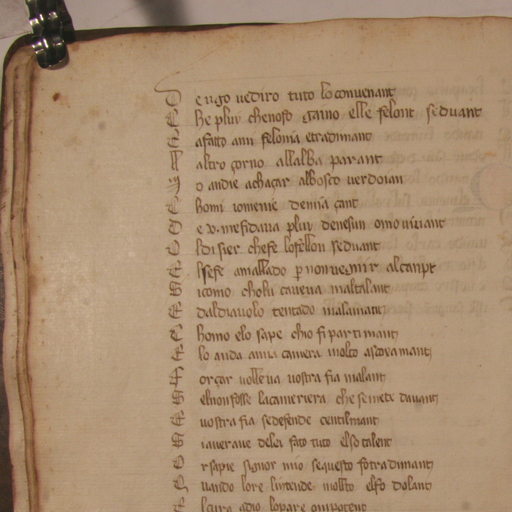 D e ugo vediro tuto lo convenant
C he pluy chenoso gaino elle felont seduant
E afatto ami felonia etradimant
A l altro çorno allalba parant
M o andie achaçar albosco verdoian
C homi iomenie demia çant
D e v. mesidava pluy denesun omo vivant
O l disier chefe losellon seduant
E lsefe amallado p non vegnir alcanpe
S icomo cholu caveva maltalant
E daldiavolo tentado malamant
C homo elo sape chio fi partimant
E lo anda ama camera molto ascovamant
F orçar volleva vostra fia malant
S elnonfosse lacameriera che semete davant
E vostra fia sedefende centilmant
S iaverave delei fato tuto elso talent
O r sapie signor mio sequesto fo tradimant
Q uando lore lintende molto elfo dolant